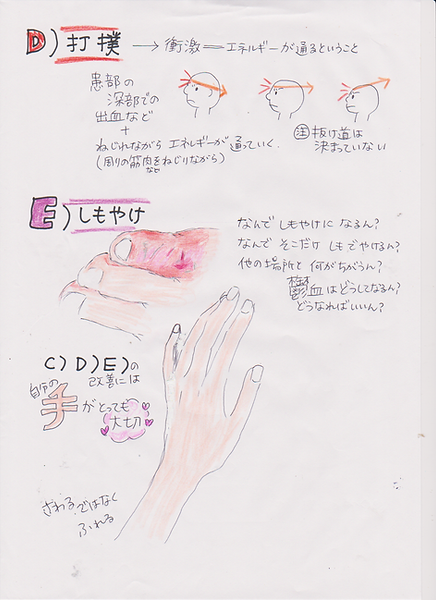 D) 打撲 → 衝激 = エネルギーが通るということ
患部の
深部での
出血など
+
ねじれながら エネルギーが 通っていく.
(周りの筋肉をねじりながら)
など
注 抜け道は
決まっていない
E) しもやけ
なんで しもやけに なるん?
なんで そこだけ しもでやけるん?
他の場所と 何がちがうん?
鬱血はどうしてなるん?
どうなればいいん?
C) D) E)の
改善には
自分の
手がとっても
大切
さわる ではなく
ふれる